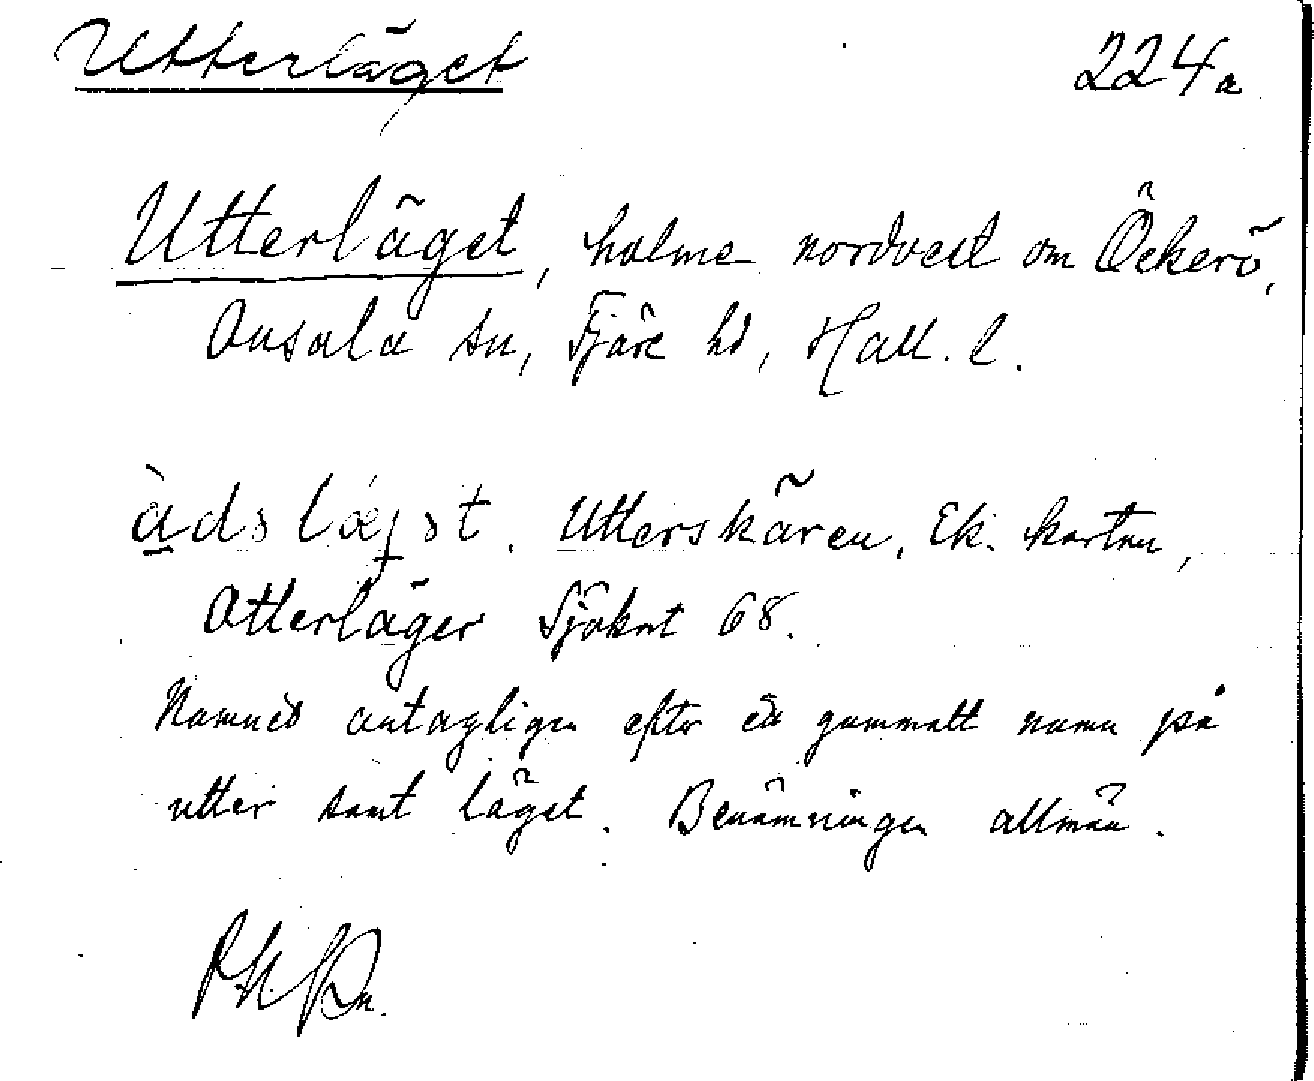 Utterläget 224a
Utterläget, holme nordvest om Öckerö,
Onsala sn, Fjäre hd, Hall. l.
Utterskären, Ek. kartan,
Otterläger Sjökort 68.
Namnet antagligen efter ett gammalt namn på
utter samt läget. Benämningen allmän.